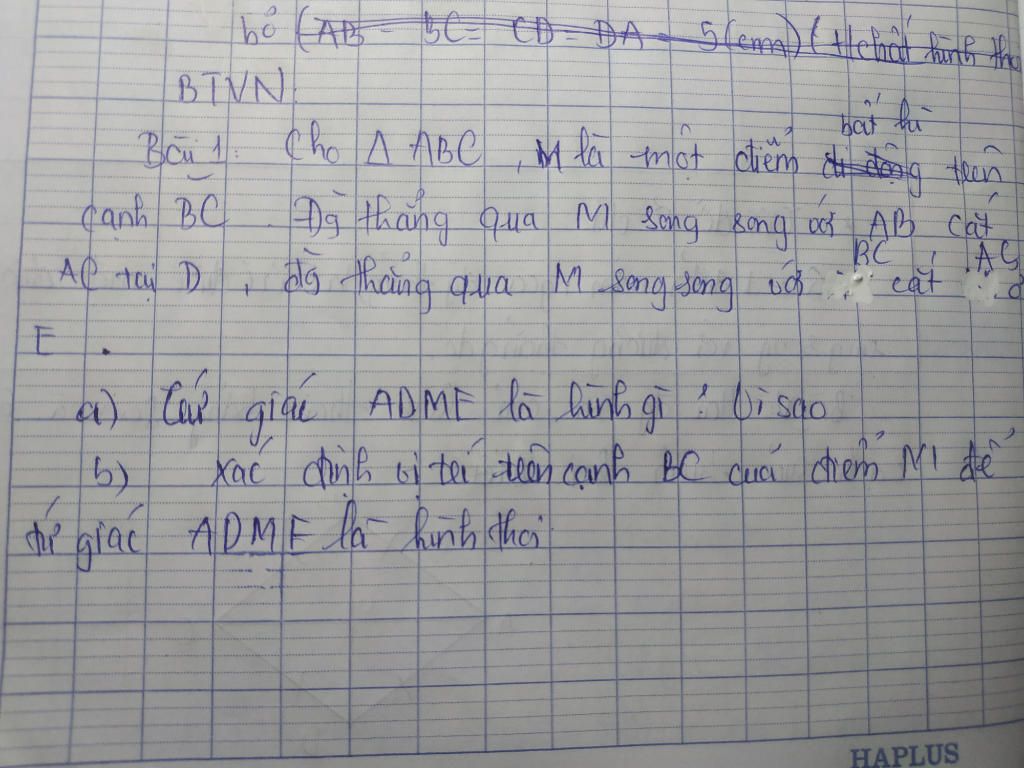 bó (AB = BC = CD = DA = 5 (cm) (t/chất hình tho
BTVN
Bài 1: Cho Δ ABC, M là một điểm di động bất kì trên
cạnh BC. Đg thẳng qua M song song với AB cắt
AC tại D, đg thẳng qua M song song với BC cắt AC ở
E.
a) Tứ giác ADME là hình gì? Vì sao
b) Xác định vị trí trên cạnh BC của điểm M để
tứ giác ADME là hình thoi
HAPLUS